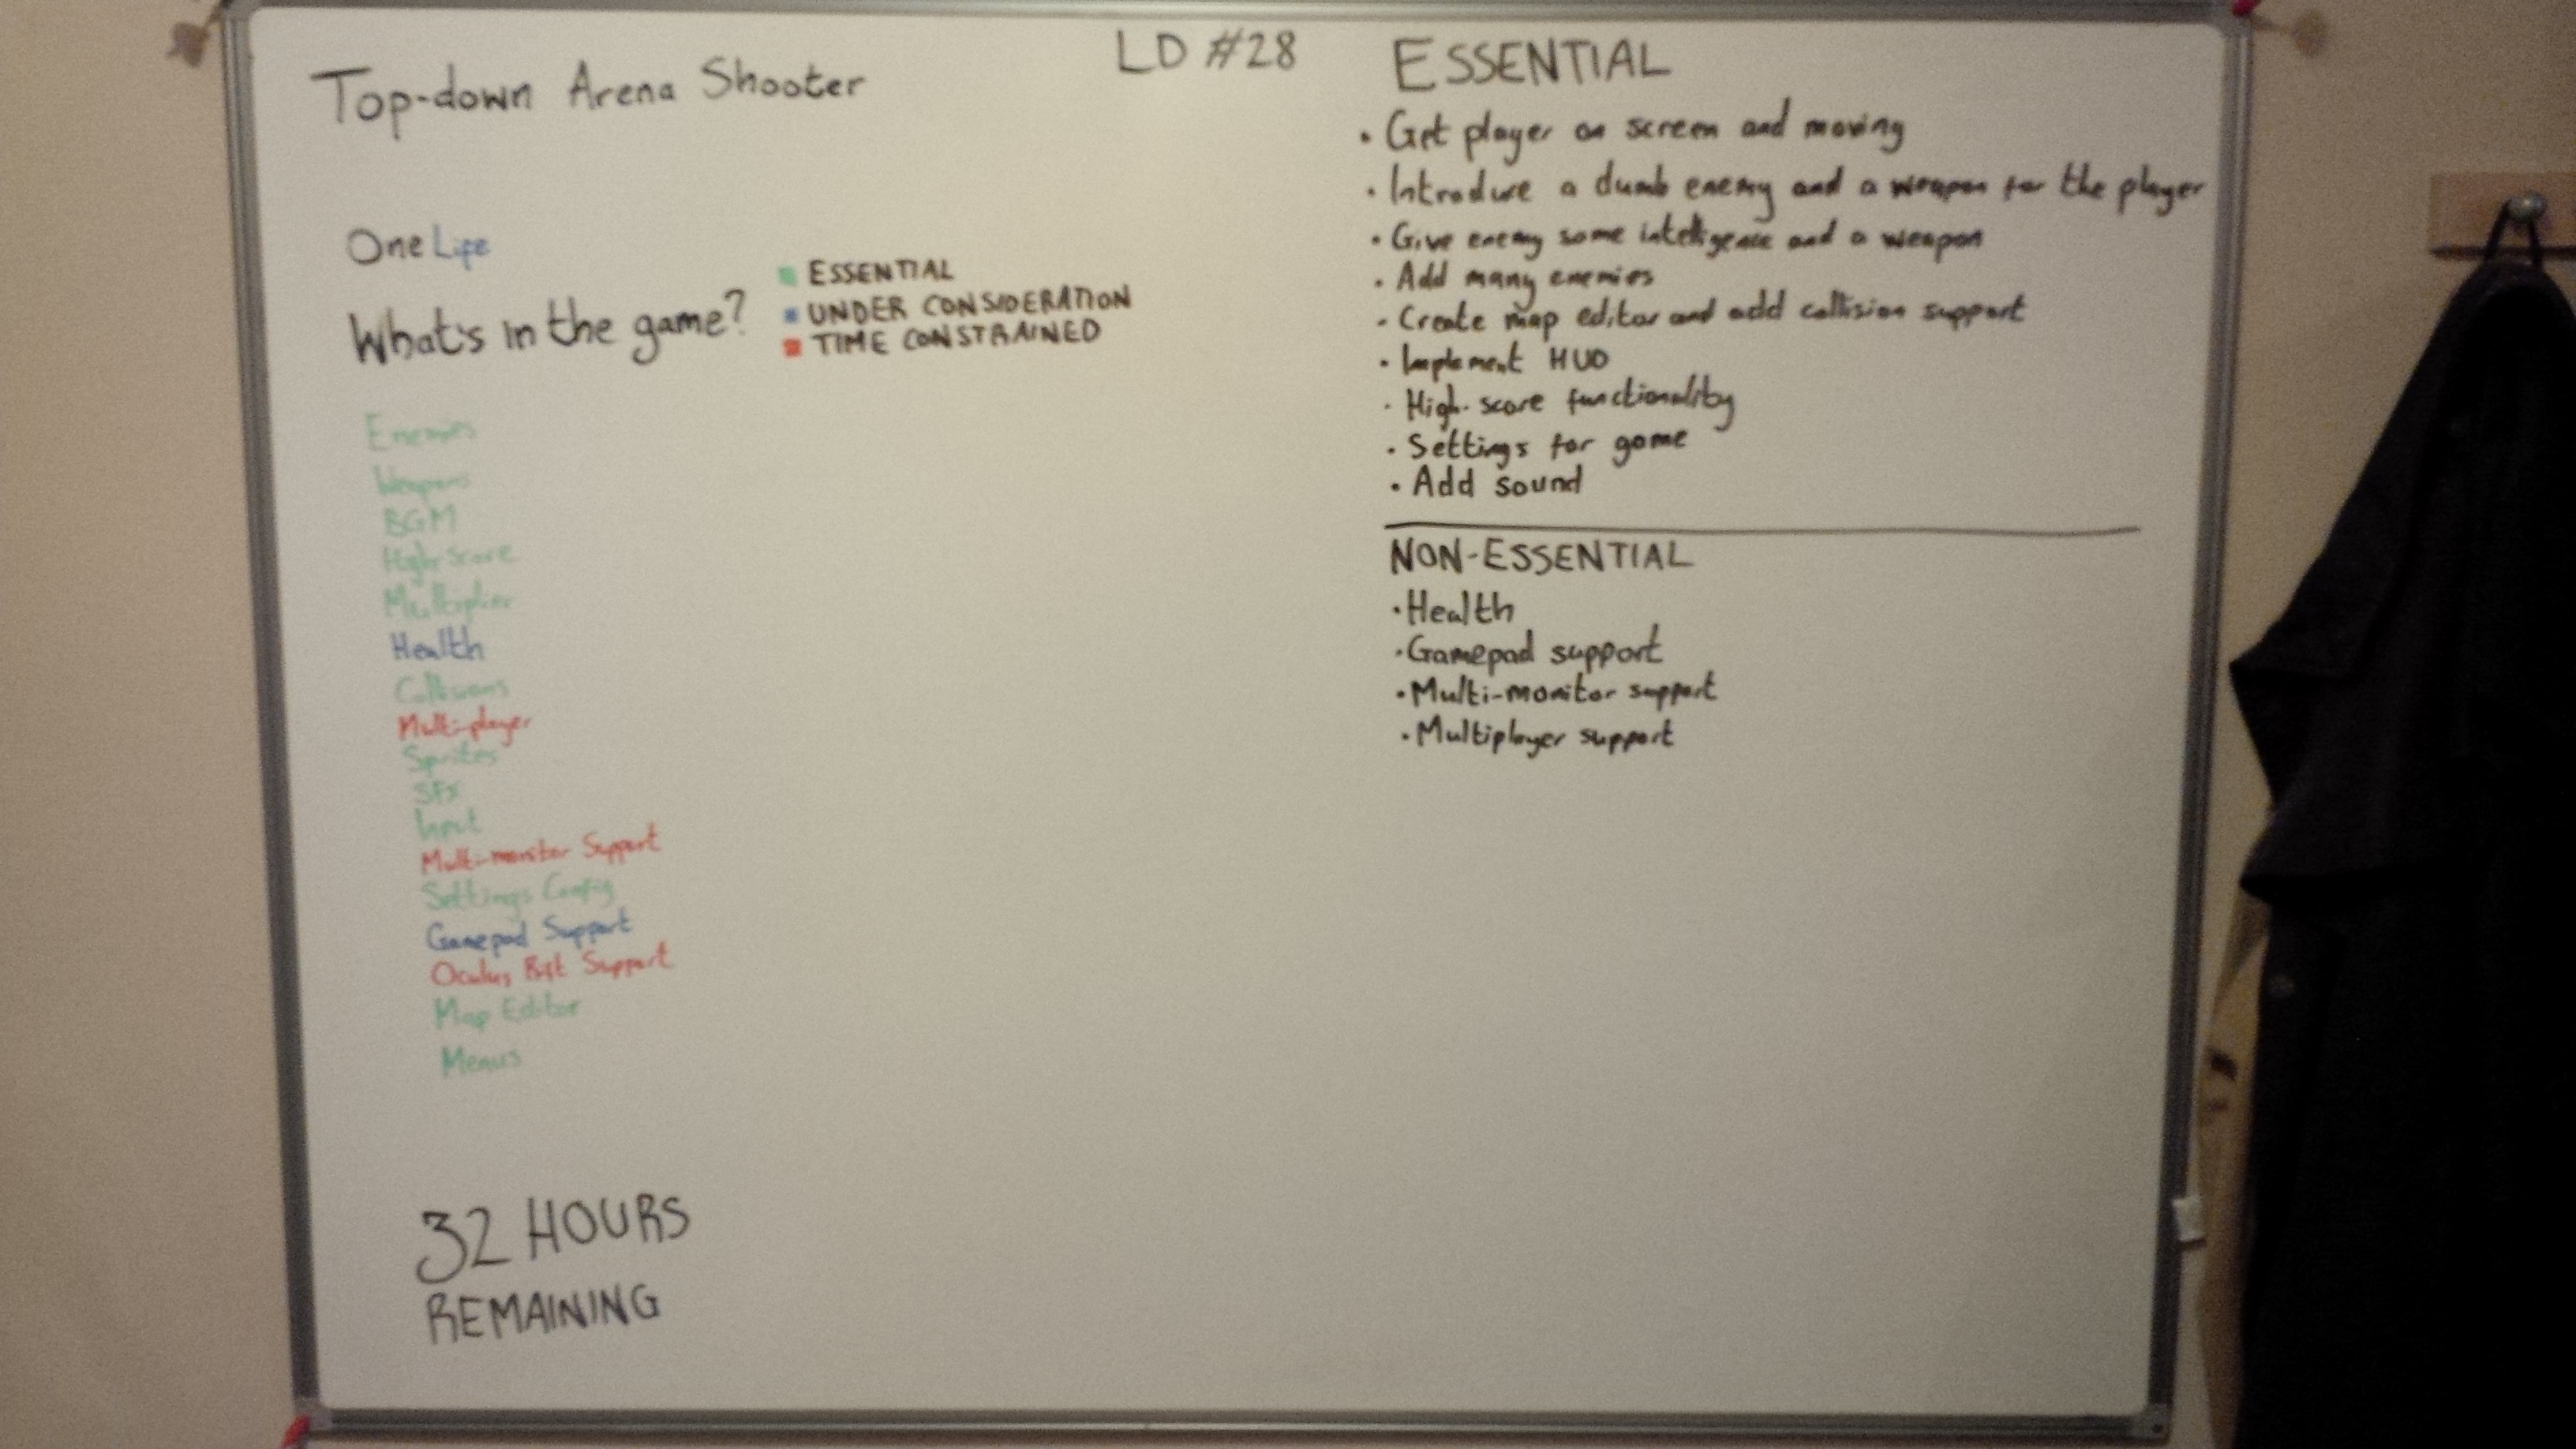 LD #28
Top-down Arena Shooter
One Life
What's in the game?
ESSENTIAL
UNDER CONSIDERATION
TIME CONSTRAINED
Enemies
Weapons
BGM
High Score
Multiplier
Health
Collisions
Multi-player
Sprites
SFX
Input
Multi-monitor Support
Settings Config
Gamepad Support
Oculus Rift Support
Map Editor
Menus
32 HOURS
REMAINING
ESSENTIAL
• Get player on screen and moving
• Introduce a dumb enemy and a weapon for the player
• Give enemy some intelligence and a weapon
• Add many enemies
• Create map editor and add collision support
• Implement HUD
• High-score functionality
• Settings for game
• Add sound
NON-ESSENTIAL
• Health
• Gamepad support
• Multi-monitor support
• Multiplayer support